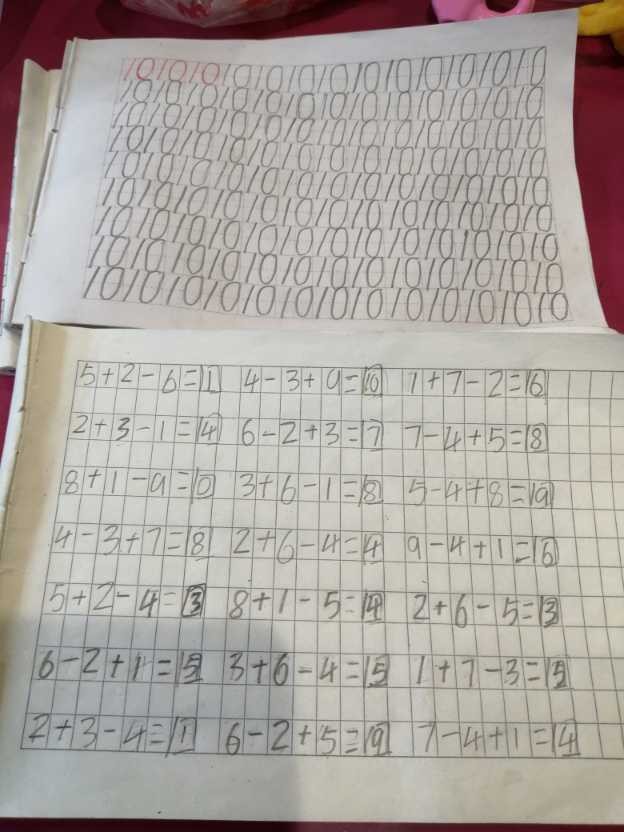 10101010101010101010101010
10101010101010101010101010
10101010101010101010101010
10101010101010101010101010
10101010101010101010101010
10101010101010101010101010
10101010101010101010101010
10101010101010101010101010
10101010101010101010101010
5+2-6=1 4-3+9=10 1+7-2=6
2+3-1=4 6-2+3=7 7-4+5=8
8+1-9=0 3+6-1=8 5-4+8=9
4-3+7=8 2+6-4=4 9-4+1=6
5+2-4=3 8+1-5=4 2+6-5=3
6-2+1=5 3+6-4=5 1+7-3=5
2+3-4=1 6-2+5=9 7-4+1=4